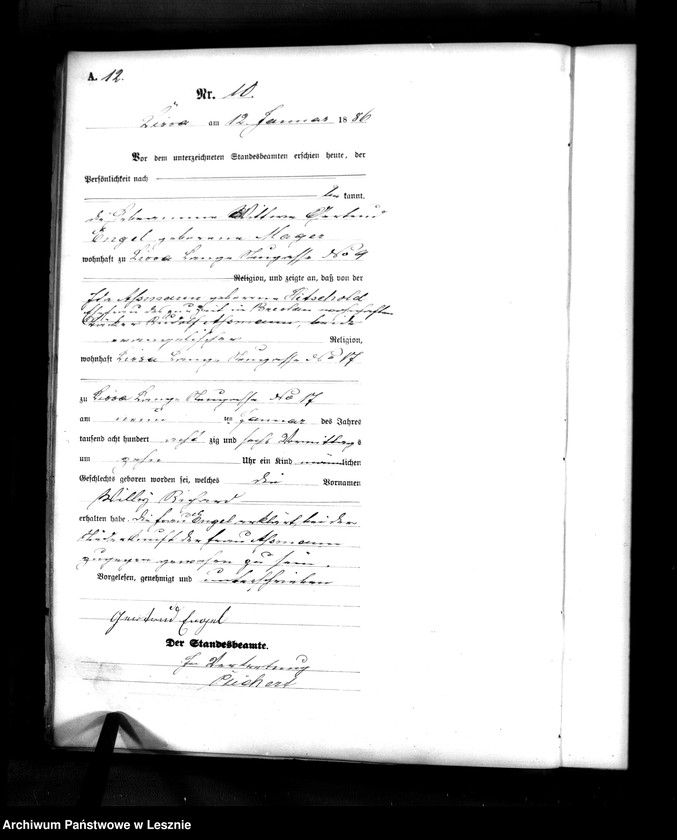 A. 12.
Nr. 10.
Lissa am 12 Januar 1886
Vor dem unterzeichneten Standesbeamten erschien heute, der
Persönlichkeit nach
kannt,
die Hebamme Wittwe Gertrud
Engel geborene Mager
wohnhaft zu Lissa Lange Neugasse No 9
Religion, und zeigte an, daß von der
Ida Assmann geborene
Ehefrau des zur Zeit in Breslau
Rudolf Assmann, beide
evangelischer Religion,
wohnhaft Lissa Lange Neugasse No 17
zu Lissa Lange Neugasse No 17
am neun ten Januar des Jahres
tausend acht hundert acht zig und sechs Vormittags
um zehn Uhr ein Kind männlichen
Geschlechts geboren worden sei, welches die Vornamen
Willy Richard
erhalten habe. Die Frau Engel erklärt, bei der
Niederkunft der Frau Assmann
zugegen gewesen zu sein.
Vorgelesen, genehmigt und unterschrieben
Gertrud Engel
Der Standesbeamte.
In Vertretung
Archiwum Państwowe w Lesznie